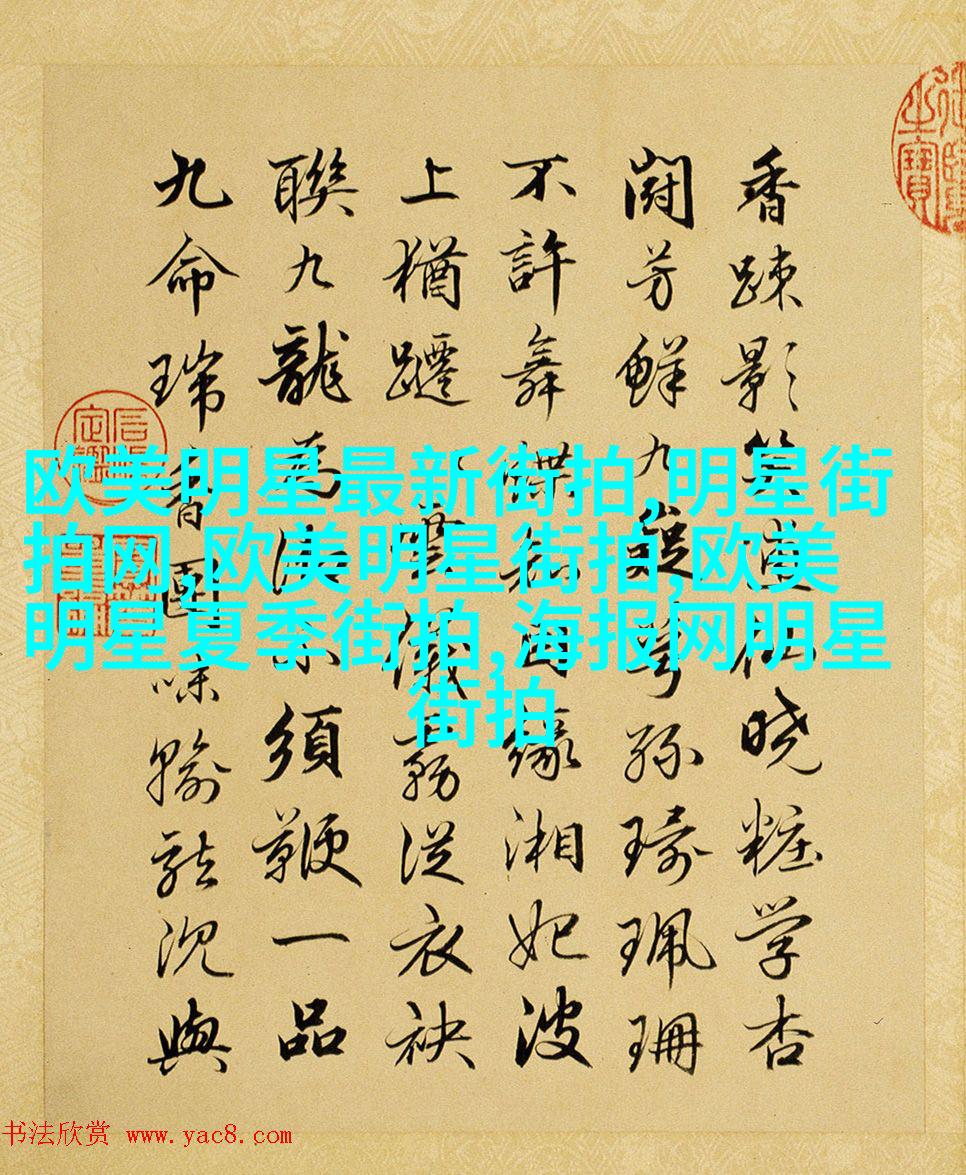 香踈影仙曉粧学杏
闘芳鮮九孫琦珮珊
不許舞蝶緣湘妃波
上猶躚霧從衣袂
聯九龍為須鞭一品
九命瑞香團輸沉與
欧美明星最新街拍,明星街
拍网,欧美明星街拍,欧美
明星夏季街拍,海报网明星
街拍
书法欣赏 www.yac8.com